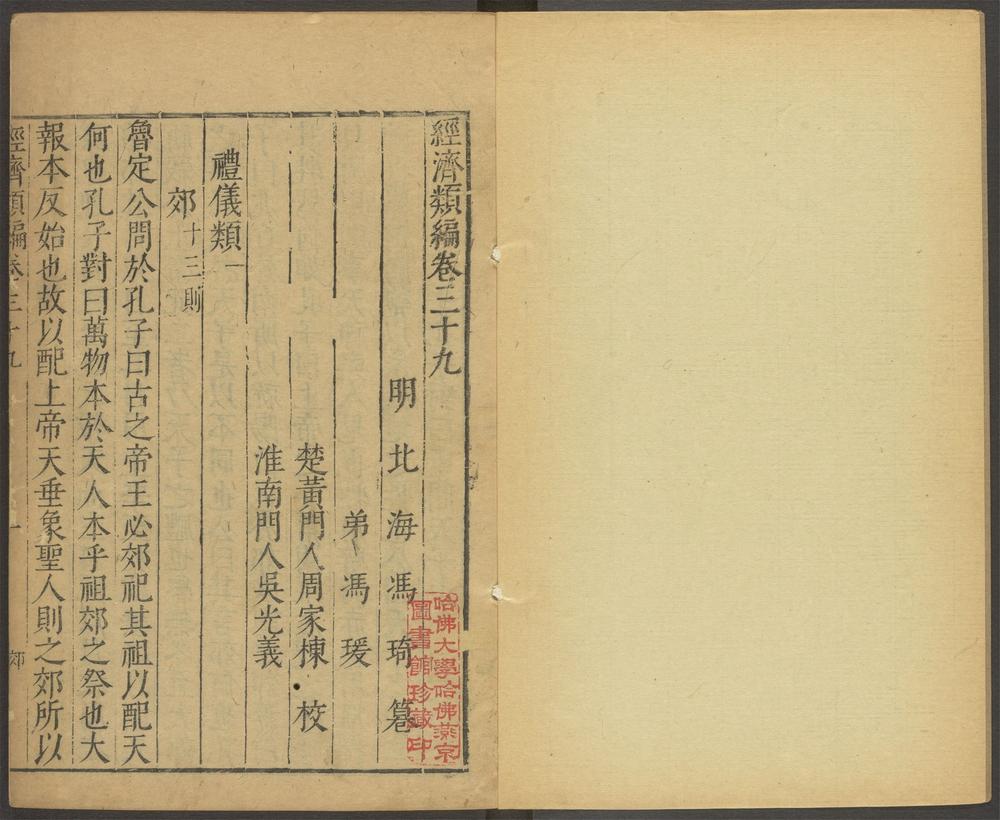 經濟類編卷三十九
明北海馮琦纂
弟馮瑗
楚黃門人周家棟校
淮南門人吳光義
禮儀類一
郊十三則
魯定公問於孔子曰古之帝王必郊祀其祖以配天
何也孔子對曰萬物本於天人本乎祖郊之祭也大
報本反始也故以配上帝天垂象聖人則之郊所以
經濟類編卷三十九 郊 一
哈佛大學哈佛燕京
圖書館珍藏印